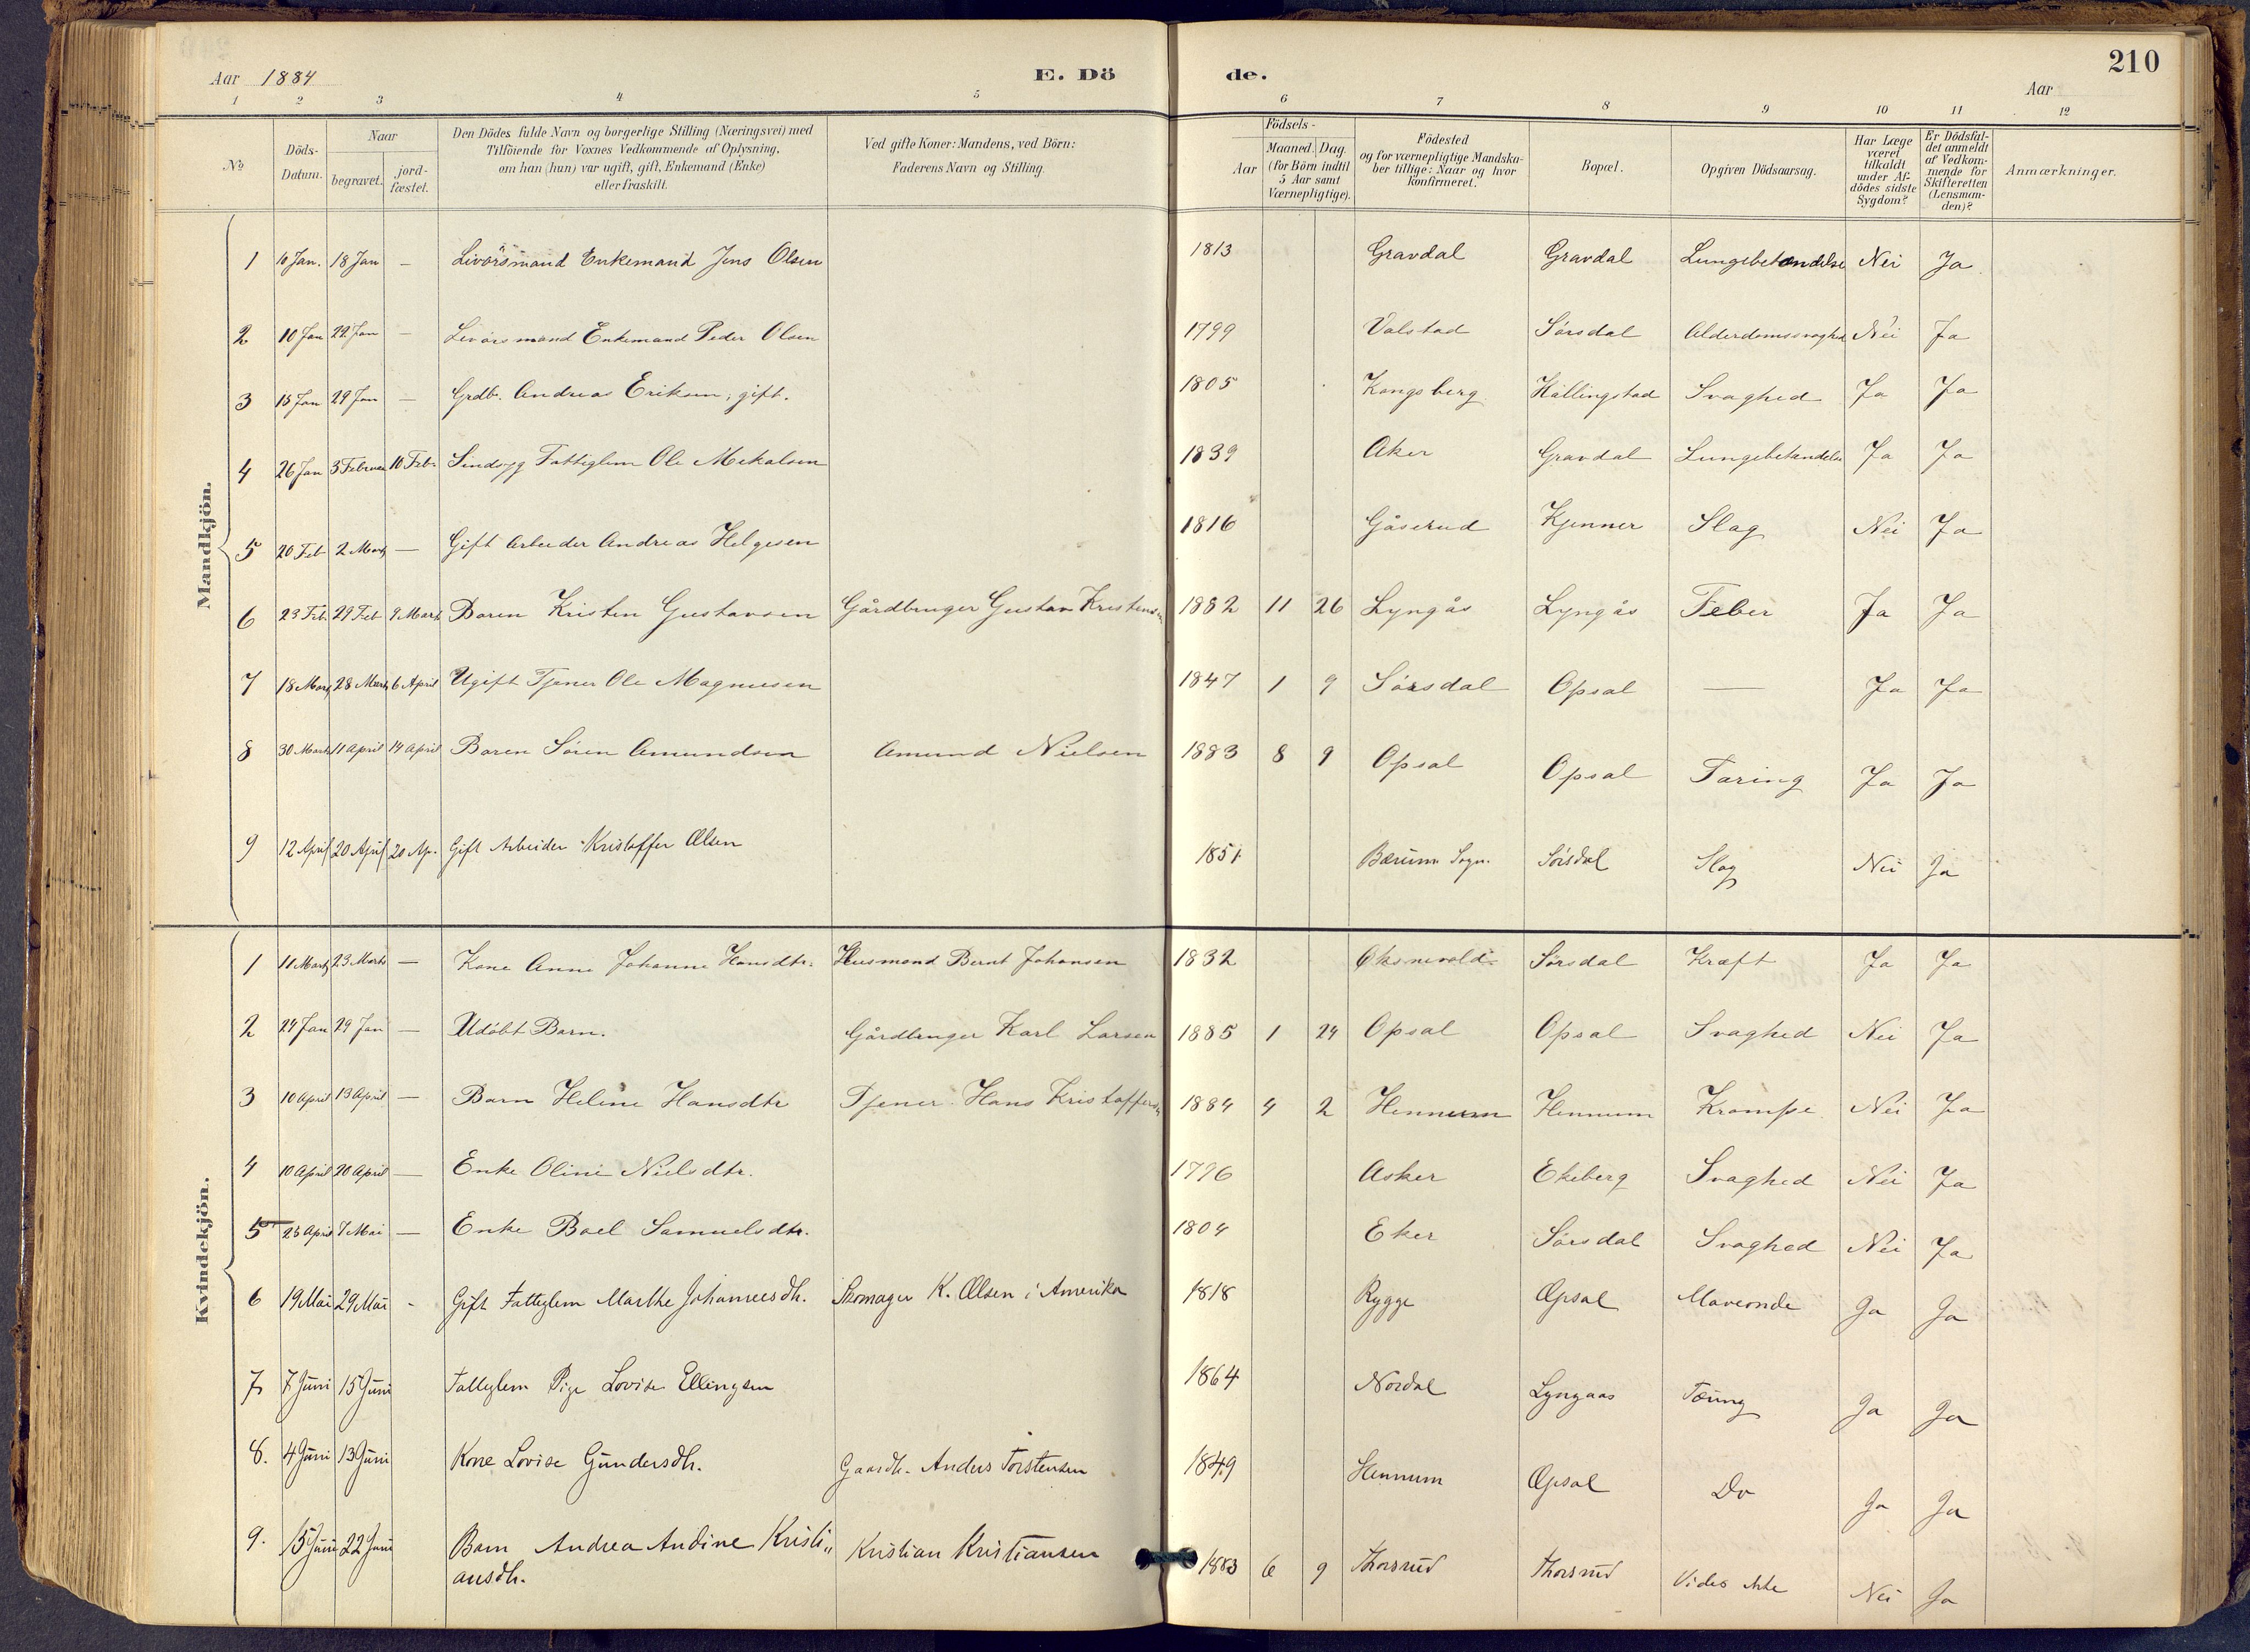 210
Aar 1884 E. Dö de. Aar
1 2 3 4 5 6 7 8 9 10 11 12
No
Döds-
Datum.
Naar
begravet.
jord-
fæstet.
Den Dödes fulde Navn og borgerlige Stilling (Næringsvei) med
Tilföiende for Voxnes Vedkommende af Oplysning,
om han (hun) var ugift, gift, Enkemand (Enke)
eller fraskilt.
Ved gifte Koner: Mandens, ved Börn:
Faderens Navn og Stilling.
Födsels-
Aar
Maaned. Dag.
(for Börn indtil
5 Aar samt
Værnepligtige).
Födested
og for værnepligtige Mandska-
ber tillige: Naar og hvor
konfirmeret.
Bopæl.
Opgiven Dödsaarsag.
Har Læge
været
tilkaldt
under Af-
dödes sidste
Sygdom?
Er Dödsfal-
det anmeldt
af Vedkom-
mende for
Skifteretten
(Lensman-
den)?
Anmærkninger.
Mandkjön.
1 10 Jan. 18 Jan — Livörsmand Enkemand Jens Olsen 1813 Gravdal Gravdal Lungebetændelse Nei Ja
2 10 Jan 22 Jan — Livörsmand Enkemand Peder Olsen 1799 Valstad Sörsdal Alderdomssvaghed Nei Ja
3 15 Jan 29 Jan — Grdb. Andreas Eriksen, gift. 1805 Kongsberg Hallingstad Svaghed Ja Ja
4 26 Jan 3 Februar 10 Feb. Sindsyg Fattiglem Ole Mekalsen 1839 Aker Gravdal Lungebetændelse Ja Ja
5 20 Feb 2 Marts — Gift Arbeider Andreas Helgesen 1816 Gåserud Kjenner Slag Nei Ja
6 23 Feb. 29 Feb 9 Marts Baren Kristen Gustavsen Gårdbruger Gustav Kristens. 1882 11 26 Lyngås Lyngås Feber Ja Ja
7 18 Marts 28 Marts 6 April Ugift Tjener Ole Magnusen 1847 1 9 Sörsdal Opsal — Ja Ja
8 30 Marts 11 April 14 April Baren Sören Amundsen Amund Nielsen 1883 8 9 Opsal Opsal Tæring Ja Ja
9 12 April 20 April 20 Ap. Gift Arbeider Kristoffer Olsen 1851 Bærum Sogn. Sörsdal Slag Nei Ja
Kvindekjön.
1 11 Marts 23 Marts — Kone Anne Johanne Hansdtr. Husmand Bernt Johansen 1832 Sörsdal Kræft Ja Ja
2 24 Jan 29 Jan — Udöbt Barn. Gårdbruger Karl Larsen 1885 1 24 Opsal Opsal Svaghed Nei Ja
3 10 April 13 April — Barn Heline Hansdtr Tjener Hans Kristoffersen 1884 4 2 Hennum Hennum Krampe Nei Ja
4 10 April 20 April — Enke Oline Nielsdtr. 1796 Asker Ekeberg Svaghed Nei Ja
5 23 April 7 Mai — Enke Boel Samuelsdtr. 1804 Eker Sörsdal Svaghed Nei Ja
6 19 Mai 29 Mai - Gift Fattiglem Marthe Johannesdtr. Skomager K. Olsen i Amerika 1818 Rygge Opsal Maveonde Ja Ja
7 7 Juni 15 Juni Fattiglem Pige Lovise Ellingsen 1864 Nordal Lyngaas Tæring Ja Ja
8. 4 Juni 13 Juni Kone Lovise Gundersdtr. Gaardb. Anders Torstensen 1849 Hennum Opsal Do Ja Ja
9. 15 Juni 22 Juni Barn Andrea Andine Kristi„ Kristian Kristiansen 1883 6 9 Thorsrud Thorsrud Vides ikke Nei Ja
ansdtr.